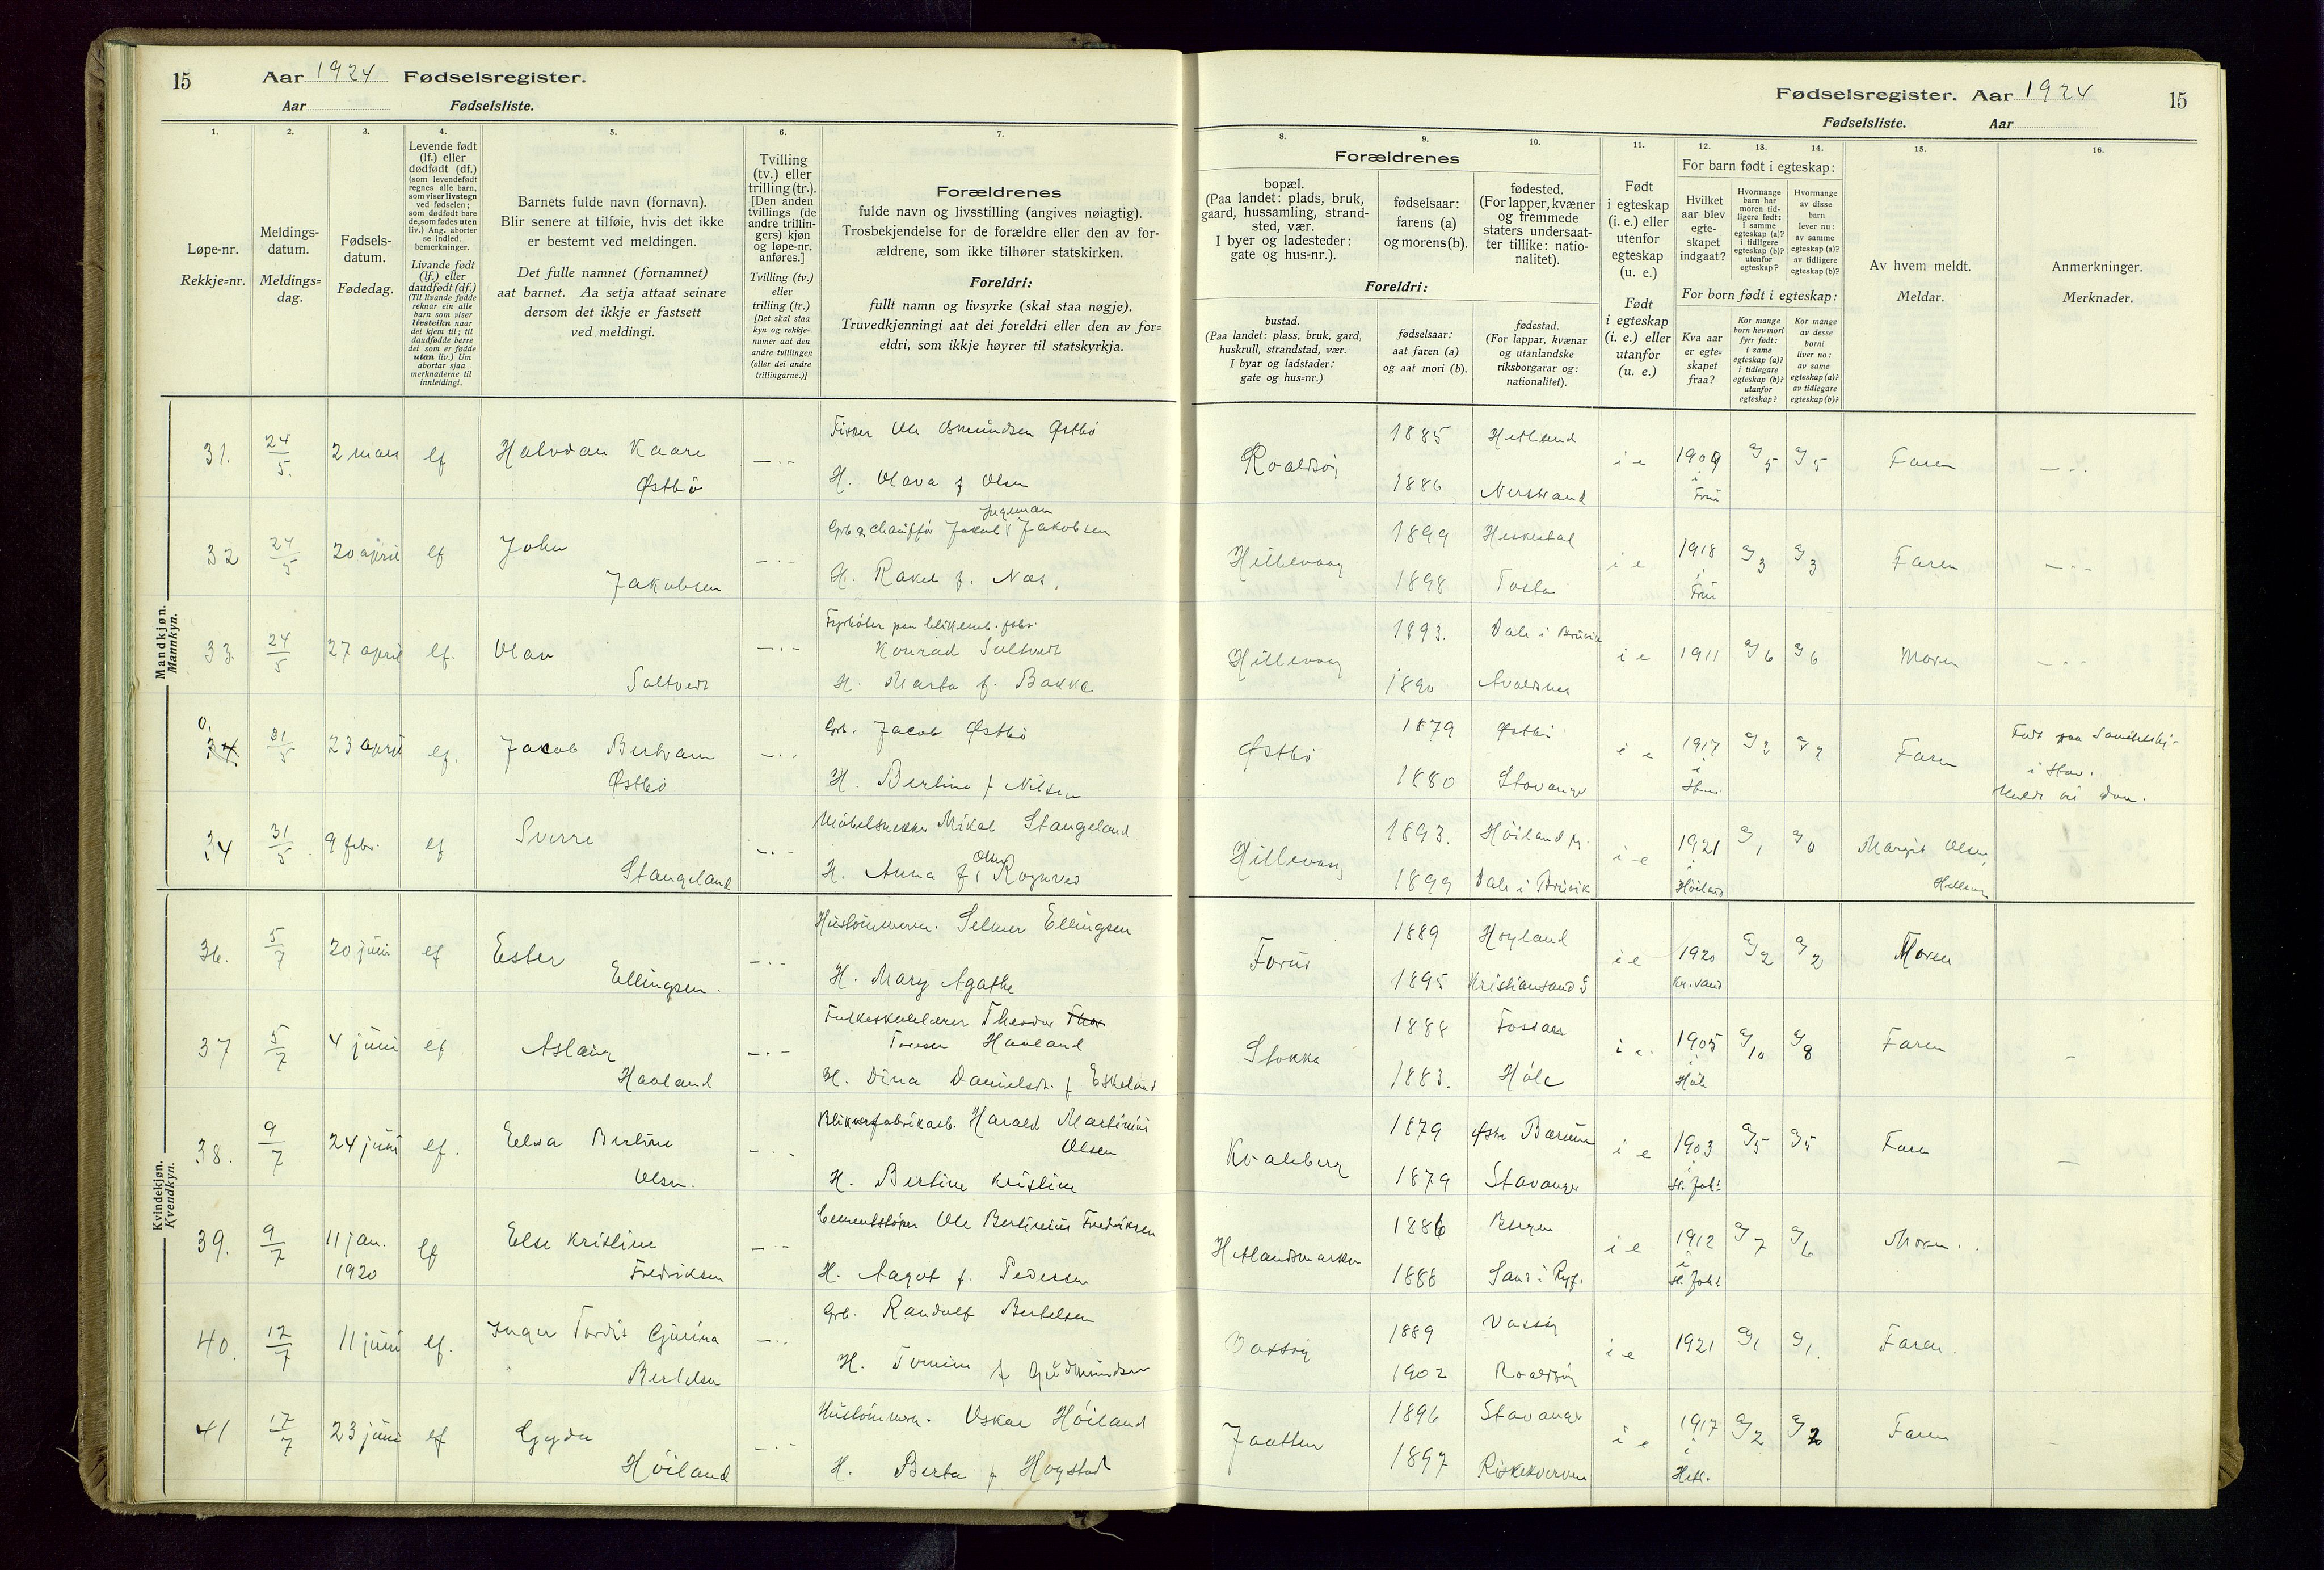 15
Aar 1924 Fødselsregister.
Aar Fødselsliste.
Fødselsregister. Aar 1924
15
Fødselsliste. Aar
1.
Løpe-nr.
Rekkje-nr.
2.
Meldings-
datum.
Meldings-
dag.
3.
Fødsels-
datum.
Fødedag.
4.
Levende født
(lf.) eller
dødfødt (df.)
(som levendefødt
regnes alle barn,
som viser livstegn
ved fødselen;
som dødfødt bare
de, som fødes uten
liv.) Ang. aborter
se indled.
bemerkninger.
Livande født
(lf.) eller
daudfødt (df.)
(Til livande fødde
reknar ein alle
barn som viser
livsteikn naar
dei kjem til; til
daudfødde berre
dei som er fødde
utan liv.) Um
abortar sjaa
merknaderne til
innleidingi.
5.
Barnets fulde navn (fornavn).
Blir senere at tilføie, hvis det ikke
er bestemt ved meldingen.
Det fulle namnet (fornamnet)
aat barnet. Aa setja attaat seinare
dersom det ikkje er fastsett
ved meldingi.
6.
Tvilling
(tv.) eller
trilling (tr.).
[Den anden
tvillings (de
andre trillin-
gers) kjøn
og løpe-nr.
anføres.]
Tvilling (tv.)
eller
trilling (tr.)
[Det skal staa
kyn og rekkje-
numer aat den
andre tvillingen
(eller dei andre
trillingarne.)]
7.
Forældrenes
fulde navn og livsstilling (angives nøiagtig).
Trosbekjendelse for de forældre eller den av for-
ældrene, som ikke tilhører statskirken.
Foreldri:
fullt namn og livsyrke (skal staa nøgje).
Truvedkjenningi aat dei foreldri eller den av for-
eldri, som ikkje høyrer til statskyrkja.
8.
Forældrenes
bopæl.
(Paa landet: plads, bruk,
gaard, hussamling, strand-
sted, vær.
I byer og ladesteder:
gate og hus-nr.).
Foreldri:
bustad.
(Paa landet: plass, bruk, gard,
huskrull, strandstad, vær.
I byar og ladstader:
gate og hus-nr.)
9.
fødselsaar:
farens (a)
og morens (b).
fødselsaar:
aat faren (a)
og aat mori (b).
10.
fødested.
(For lapper, kvæner
og fremmede
staters undersaat-
ter tillike: natio-
nalitet).
fødestad.
(For lappar, kvænar
og utanlandske
riksborgarar og:
nationalitet).
11.
Født
i egteskap
(i. e.) eller
utenfor
egteskap
(u. e.)
Født
i egteskap
(i. e.) eller
utanfor
(u. e.)
For barn født i egteskap:
12.
Hvilket
aar blev
egte-
skapet
indgaat?
13.
Hvormange
barn har
moren tid-
ligere født:
i samme
egteskap (a)?
i tidligere
egteskap (b)?
utenfor
egteskap?
14.
Hvormange
av disse
barn
lever nu:
av samme
egteskap (a)?
av tidligere
egteskap (b)?
For born født i egteskap:
Kva aar
er egte-
skapet
fraa?
Kor mange
born hev mori
fyrr født:
i same
egteskap (a)?
i tidlegare
egteskap (b)?
utanfor
egteskap?
Kor mange
av desse
borni
liver no:
av same
egteskap (a)?
av tidlegare
egteskap (b)?
15.
Av hvem meldt.
Meldar.
16.
Anmerkninger.
Merknader.
Mandkjøn.
Mannkyn.
31. 24/5. 2 mars lf Halvdan Kaare Østbö
Fisker Ole Osmundsen Østbö
H. Olava f Olsen
Roaldsöi 1885 Hetland 1886 Nerstrand i e 1909 g/5 g/5 Faren
32 24/5 20 april lf John Jakobsen
Grb. & chaufför Jakob Ingeman Jakobsen
H. Rakel f. Næs.
Hillevaag 1899 Heskestad 1898 i e 1918 g/3 g/3 Faren
33. 24/5 27 april lf. Olav Saltvedt
Konrad Saltvedt
H. Marta f. Bakka
Hillevaag 1893. Dale i Bruvik 1890 Avaldsnes i e 1911 g/6 g/6 Moren
0. 34. 31/5 23 april lf. Jacob Bertram Østbö
Grb. Jacob Østbö
H. Bertine f Nilsen
Østbö 1879 Østbö 1880 Stavanger i e 1917 g/2 g/2 Faren
i Stav.
34 31/5. 9 febr. lf Sverre Stangeland
Möbelsnekker Mikal Stangeland
H. Anna f. Olsen Rognved
Hillevaag 1893. Höiland pr. 1899 Dale i Bruvik i e 1921 i Höiland g/1 g/0 Margit Olsen, Hillevag
Kvindekjøn.
Kvendkyn.
36. 5/7 20 juni lf Ester Ellingsen.
Hustömmerm. Selmer Ellingsen
H. Mary Agathe
Forus 1889 Hoyland 1895 Kristiansand S i e 1920 Kr.sand g/2 g/2 Moren
37 5/7 4 juni lf Aslaug Haaland
Folkeskolelærer Theodor Thor
Toresen Haaland
H. Dina Danielsdt. f Eskeland
Stokka 1888 Fossan 1883. Höle i e. 1905 i Höle g/10 g/8 Faren
38. 9/7 24 juni lf. Elsa Bertine Olsen.
Blikvarefabrikarb. Harald Martinius Olsen
H. Bertine Kristine
Kvaleberg 1879 Østre Bærum 1879 Stavanger i e 1903 i St. Joh: g/5 g/5 Faren
39. 9/7 11 jan. 1920 lf Else Kristine Fredriksen
Cementstöper Ole Bertinius Fredriksen
H. Aagot f. Pedersen
Hetlandsmarken 1886 Bergen 1888 Sand i Ryf. i e 1912 i St. Joh: g/7 g/6 Moren.
40. 12/7 11 juni lf. Inger Tordis Gjurina Bertelsen
Grb. Randolf Bertelsen
H. Tomine f Gudmundsen
Vassöy 1889 Vassöy 1902 Roaldsöy i e 1921 g/1 g/1. Faren.
41 17/7 23 juni lf Gyda Höiland
Hustömmerm. Oskar Höiland
H. Berta f Hogstad
Jaatten 1896 Stavanger 1897 Riskekverven i e 1917 i Hetl. g/2 g/2 Faren